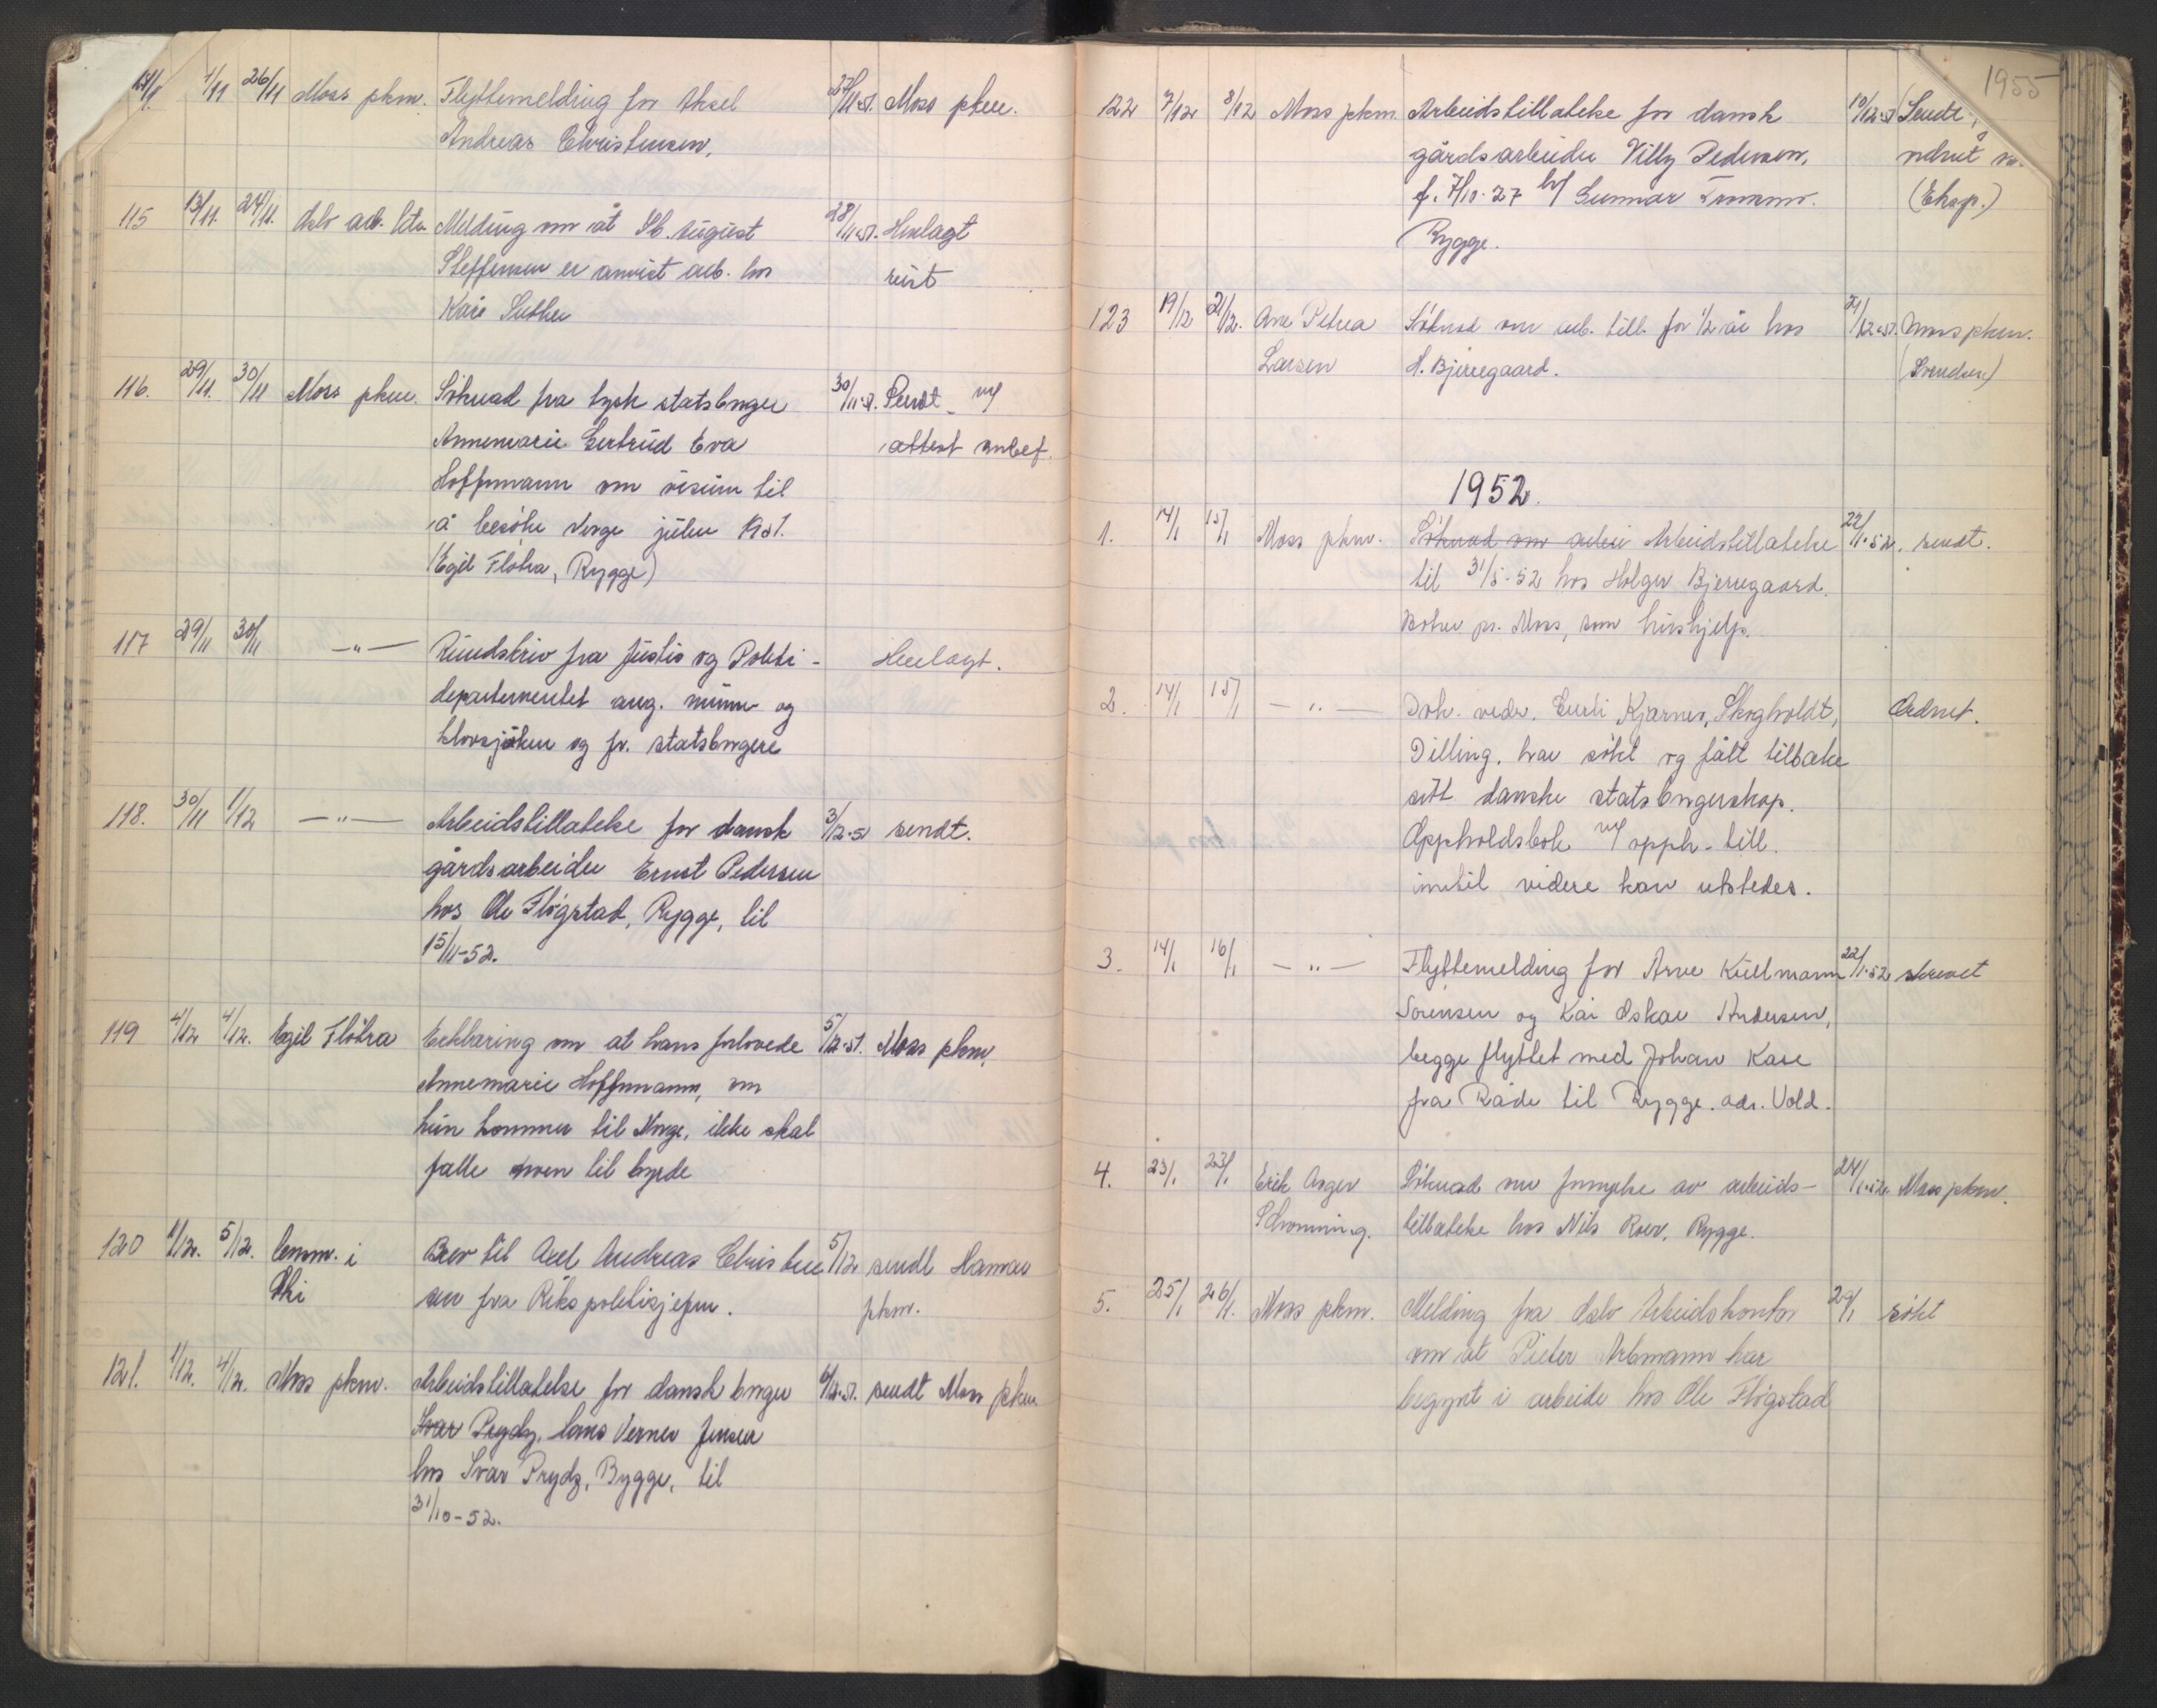 1/11 26/11 Moss pkm. Flyttemelding for Aksel 27/11-51. Moss pkm.
Andreas Christensen.
115 13/11. 24/11. Oslo arb. ktr. Melding om at Sb. August 28/11-51. Henlagt
Steffensen er anvist arb. hos
Kåre Sæther
116. 29/11. 30/11 Moss pkm. Söknad fra tysk statsborger 30/11-51. Sendt m/
Annemarie Gertrud Eva attest anbef.
Hoffmann om visum til
å besöke Norge julen 1951.
(Egil Flötra, Rygge)
117 29/11 30/11 —"— Rundskriv fra Justis og Politi- Henlagt.
departementet ang. munn- og
klovsjuken og fr. statsborgere
118. 30/11 1/12 —"— Arbeidstillatelse for dansk 3/12-51 sendt.
gårdsarbeider Ernst Pedersen
hos Ole Flögstad, Rygge, til
15/11-52.
119 4/12 4/12. Egil Flötra Erklæring om at hans forlovede 5/12-51. Moss pkm.
Annemarie Hoffmann, om
hun kommer til Norge, ikke skal
falle noen til byrde
120 1/12. 5/12. Lensm. i Brev til Axel Andreas Christen 5/12 sendt Hamar
Ski sen fra Rikspolitisjefen. pkm.
121. 1/12. 4/12. Moss pkm. Arbeidstillatelse for dansk borger 6/12-51. sendt Moss pkm
Ivar Prydz, Hans Verner Jensen
hos Ivar Prydz, Rygge, til
31/10-52.
1955
122 7/12 8/12 Moss pkm. Arbeidstillatelse for dansk 10/12-51 Sendt
gårdsarbeider Villy Pedersen,
f. 7/10-27 h/ Gunnar
Rygge. (Eksp.)
123 19/12 21/12. Ane Petrea Söknad om arb. till. for 1/2 år hos 21/12-51. Moss pkm.
Larsen H. Bjerregaard. (Svendsen)
1952.
1. 14/1 15/1 Moss pkm. Söknad om arbei Arbeidstillatelse 22/1-52. sendt.
til 31/5-52 hos Holger Bjerregaard.
Botner pr. Moss, som hushjelp.
2. 14/1 15/1 —"— Dok. vedr. Gurli Kjærnes, Skogholdt, Ordnet.
Dilling, har sökt og fått tilbake
sitt danske statsborgerskap.
Oppholdsbok m/ opph.-till.
inntil videre kan utstedes.
3. 14/1 16/1 —"— Flyttemelding for Arne Kullmann 22/1-52 skrevet
Sörensen og Kai Oskar Andersen,
begge flyttet med Johan Kase
fra Råde til Rygge. adr. Vold.
4. 23/1 23/1 Erik Asger Söknad om fornyelse av arbeids- 24/1-52. Moss pkm.
Schrönning. tillatelse hos Nils Roer, Rygge.
5. 25/1 26/1. Moss pkm. Melding fra Oslo Arbeidskontor 29/1 sökt
om at Pieter Arbmann har
begynt i arbeide hos Ole Flögstad